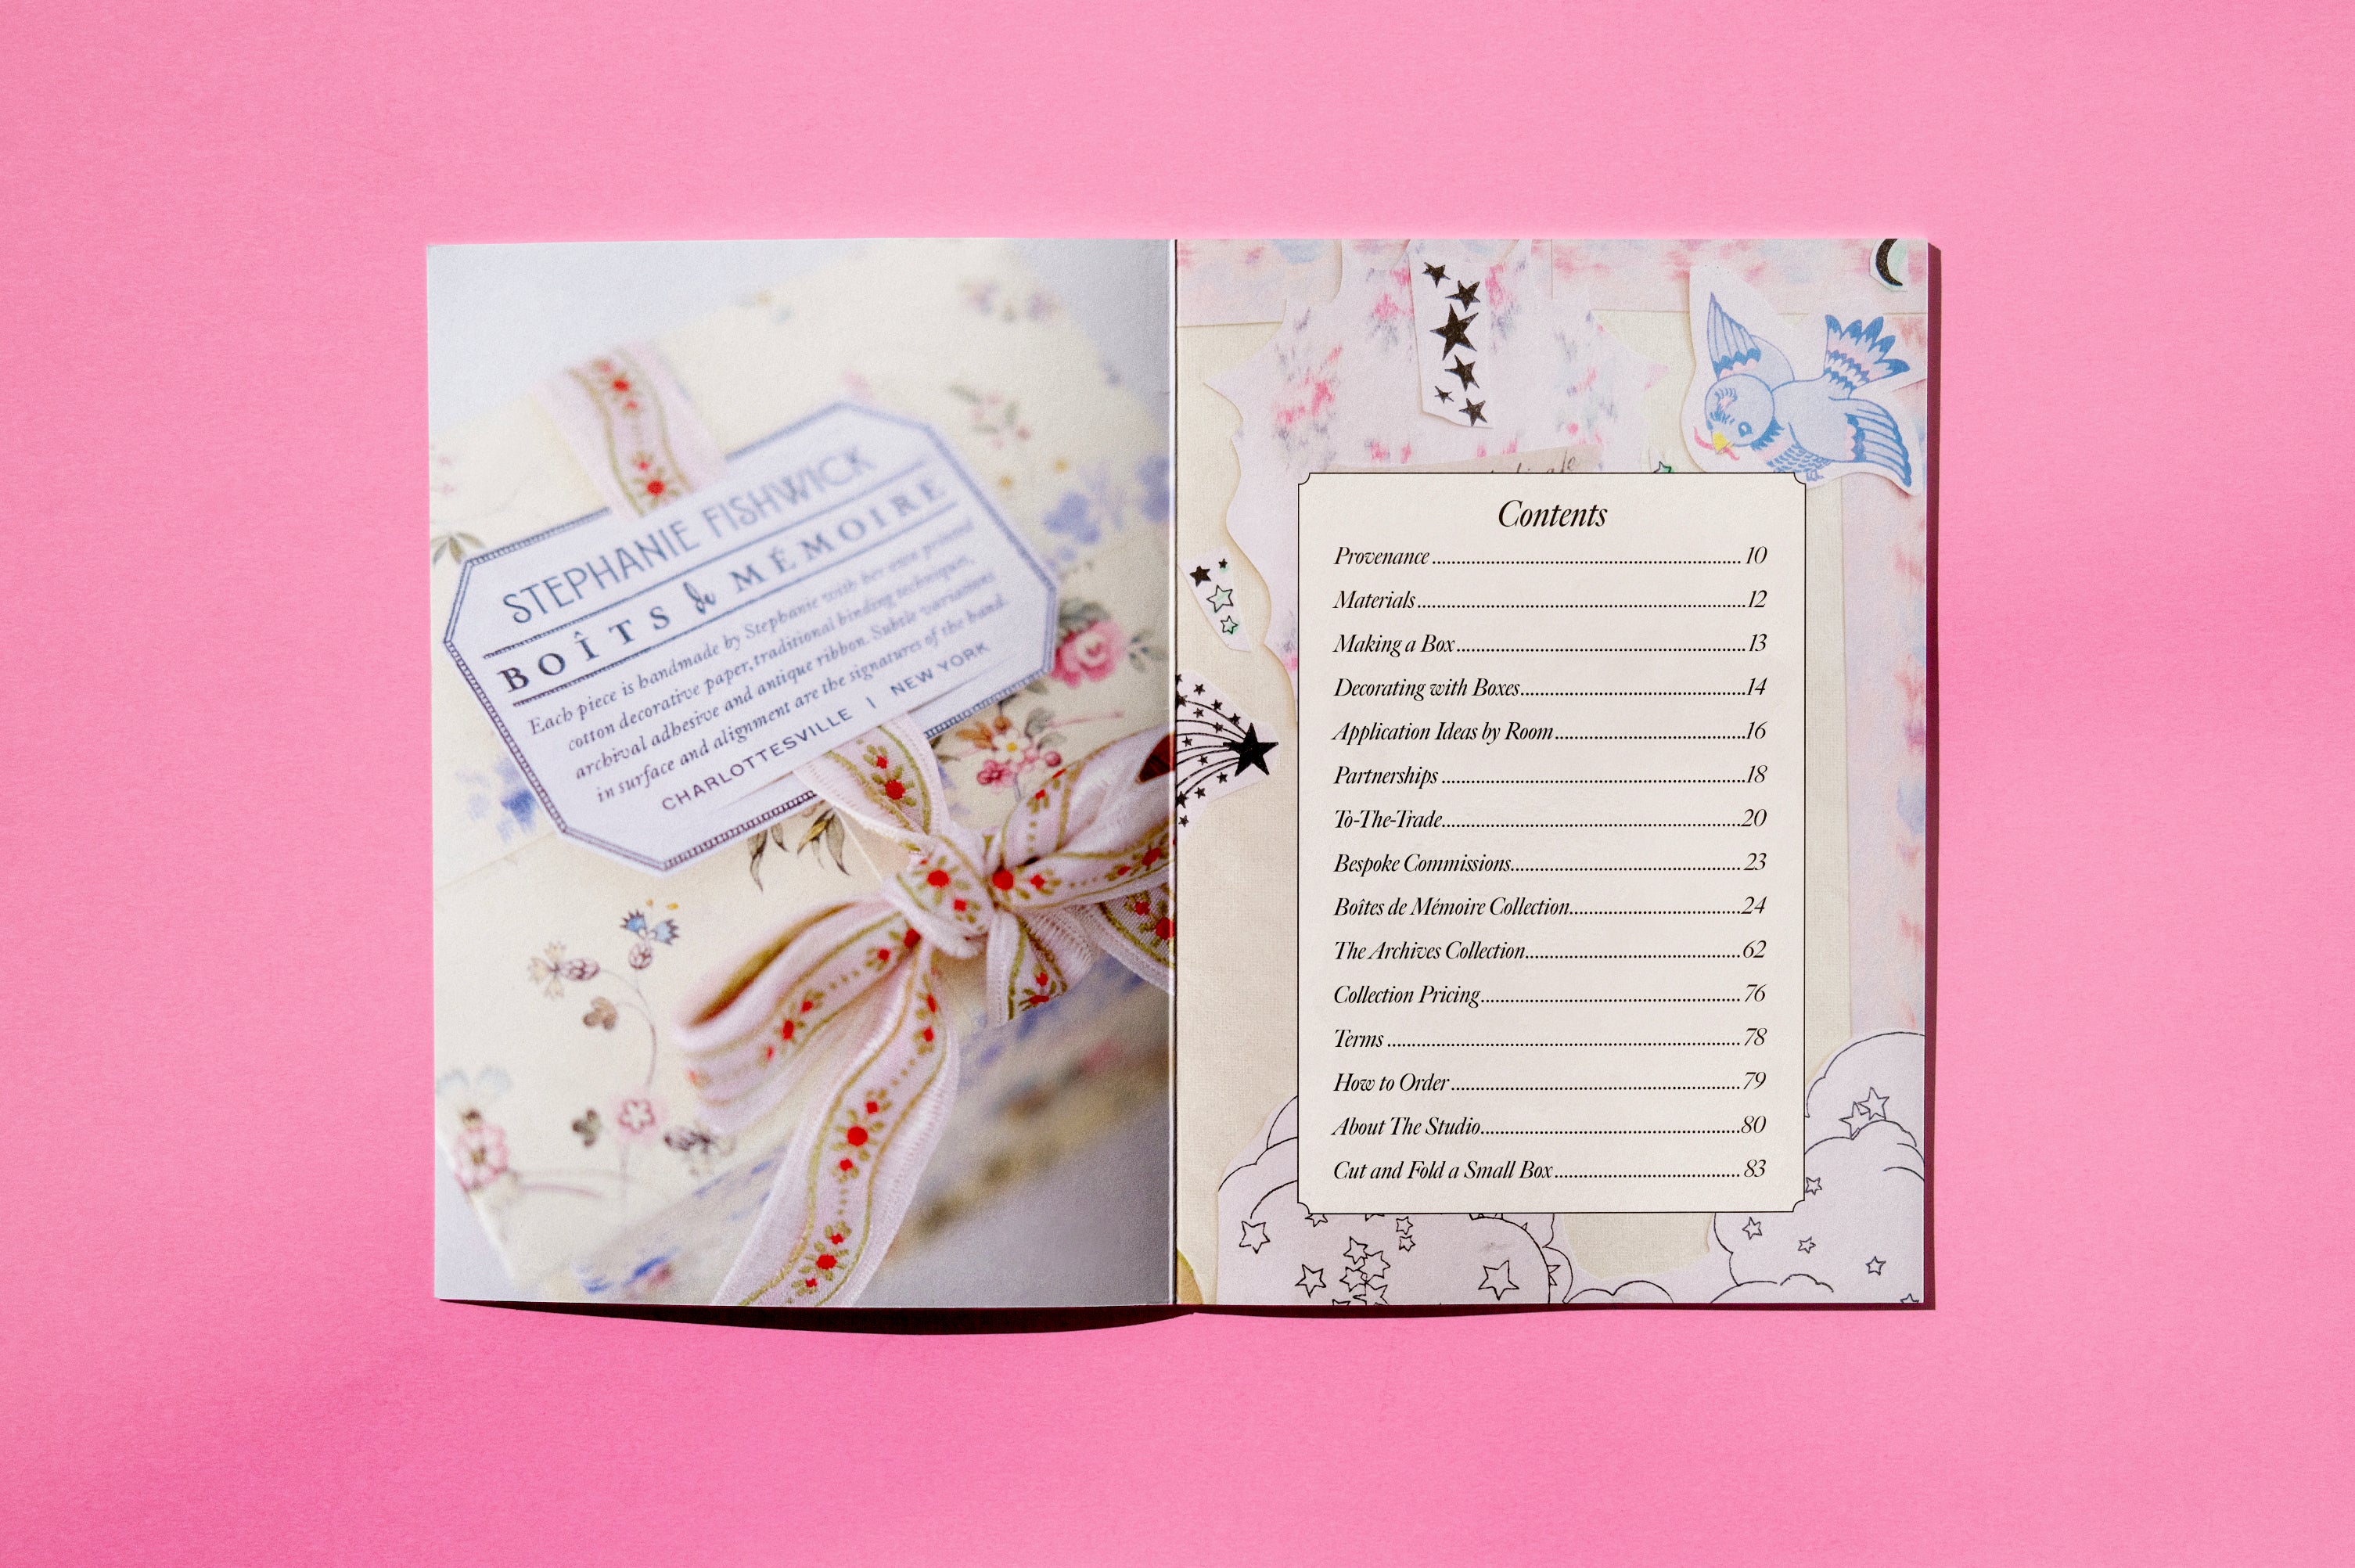 STEPHANIE FISHWICK
BOÎTS de MÉMOIRE
Each piece is handmade by Stephanie with her own printed
cotton decorative paper, traditional binding techniques,
archival adhesive and antique ribbon. Subtle variations
in surface and alignment are the signatures of the hand.
CHARLOTTESVILLE | NEW YORK
Contents
Provenance 10
Materials 12
Making a Box 13
Decorating with Boxes 14
Application Ideas by Room 16
Partnerships 18
To-The-Trade 20
Bespoke Commissions 23
Boîtes de Mémoire Collection 24
The Archives Collection 62
Collection Pricing 76
Terms 78
How to Order 79
About The Studio 80
Cut and Fold a Small Box 83